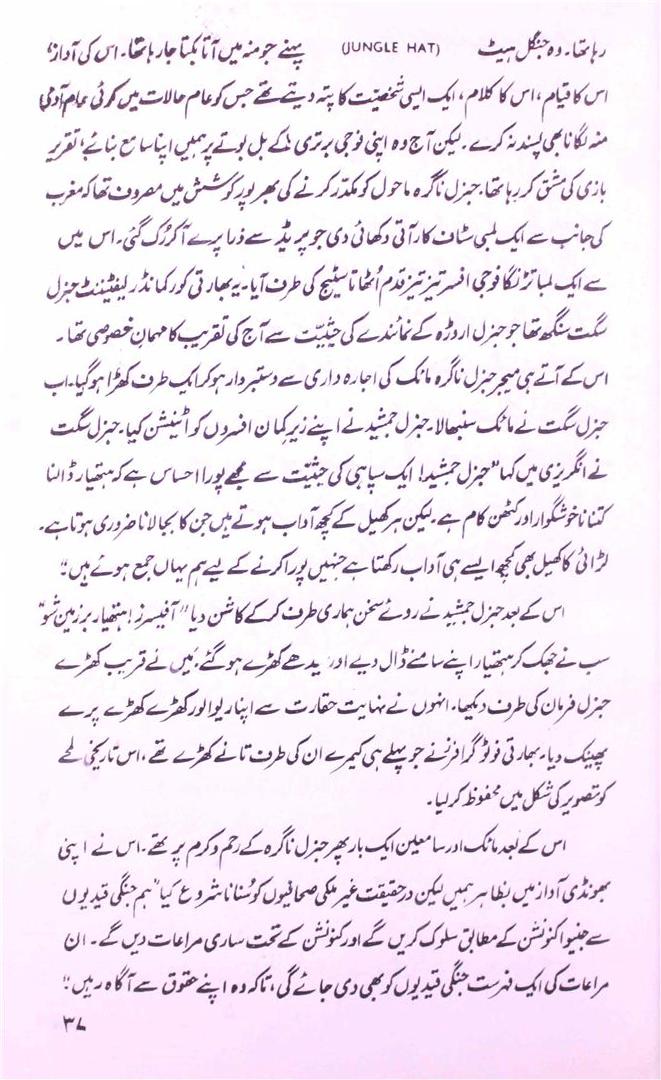 رہا تھا۔ وہ جنگل ہیٹ (JUNGLE HAT) پہنے جو منہ میں آتا بکتا جا رہا تھا۔ اس کی آواز،
اس کا قیام، اس کا کلام، ایک ایسی شخصیت کا پتہ دیتے تھے جس کو عام حالات میں کوئی عام آدمی
منہ لگانا بھی پسند نہ کرے۔ لیکن آج وہ اپنی فوجی برتری کے بل بوتے پر ہمیں اپنا سامع بنائے، تقریر
بازی کی مشق کر رہا تھا۔ جنرل ناگرہ ماحول کو مکدّر کرنے کی بھرپور کوشش میں مصروف تھا کہ مغرب
کی جانب سے ایک لمبی سٹاف کار آتی دکھائی دی جو پریڈ سے ذرا پرے آکر رُک گئی۔ اس میں
سے ایک لمبا تڑنگا فوجی افسر تیز تیز قدم اُٹھاتا سٹیج کی طرف آیا۔ یہ بھارتی کور کمانڈر لیفٹیننٹ جنرل
سگت سنگھ تھا جو جنرل اروڑہ کے نمائندے کی حیثیّت سے آج کی تقریب کا مہمان خصوصی تھا۔
اس کے آتے ہی میجر جنرل ناگرہ مائک کی اجارہ داری سے دستبردار ہوکر ایک طرف کھڑا ہوگیا۔ اب
جنرل سگت نے مائک سنبھالا۔ جنرل جمشید نے اپنے زیرِ کمان افسروں کو اٹینشن کیا۔ جنرل سگت
نے انگریزی میں کہا "جنرل جمشید! ایک سپاہی کی حیثیّت سے مجھے پورا احساس ہے کہ ہتھیار ڈالنا
کتنا ناخوشگوار اور کٹھن کام ہے۔ لیکن ہر کھیل کے کچھ آداب ہوتے ہیں جن کا بجالانا ضروری ہوتا ہے۔
لڑائی کا کھیل بھی کچھ ایسے ہی آداب رکھتا ہے جنہیں پورا کرنے کے لیے ہم یہاں جمع ہوئے ہیں؛"
اس کے بعد جنرل جمشید نے روئے سخن ہماری طرف کرکے کاشن دیا "آفیسرز! ہتھیار بر زمین شو"
سب نے جھک کر ہتھیار اپنے سامنے ڈال دیے اور سیدھے کھڑے ہوگئے، مَیں نے قریب کھڑے
جنرل فرمان کی طرف دیکھا۔ انہوں نے نہایت حقارت سے اپنا ریوالور کھڑے کھڑے پرے
پھینک دیا۔ بھارتی فوٹوگرافرز نے جو پہلے ہی کیمرے ان کی طرف تانے کھڑے تھے، اس تاریخی لمحے
کو تصویر کی شکل میں محفوظ کرلیا۔
اس کے بعد مائک اور سامعین ایک بار پھر جنرل ناگرہ کے رحم و کرم پر تھے۔ اس نے اپنی
بھونڈی آواز میں بظاہر ہمیں لیکن درحقیقت غیر ملکی صحافیوں کو سُنانا شروع کیا "ہم جنگی قیدیوں
سے جنیوا کنونشن کے مطابق سلوک کریں گے اور کنونشن کے تحت ساری مراعات دیں گے۔ ان
مراعات کی ایک فہرست جنگی قیدیوں کو بھی دی جائے گی، تاکہ وہ اپنے حقوق سے آگاہ رہیں؛"
۳۷